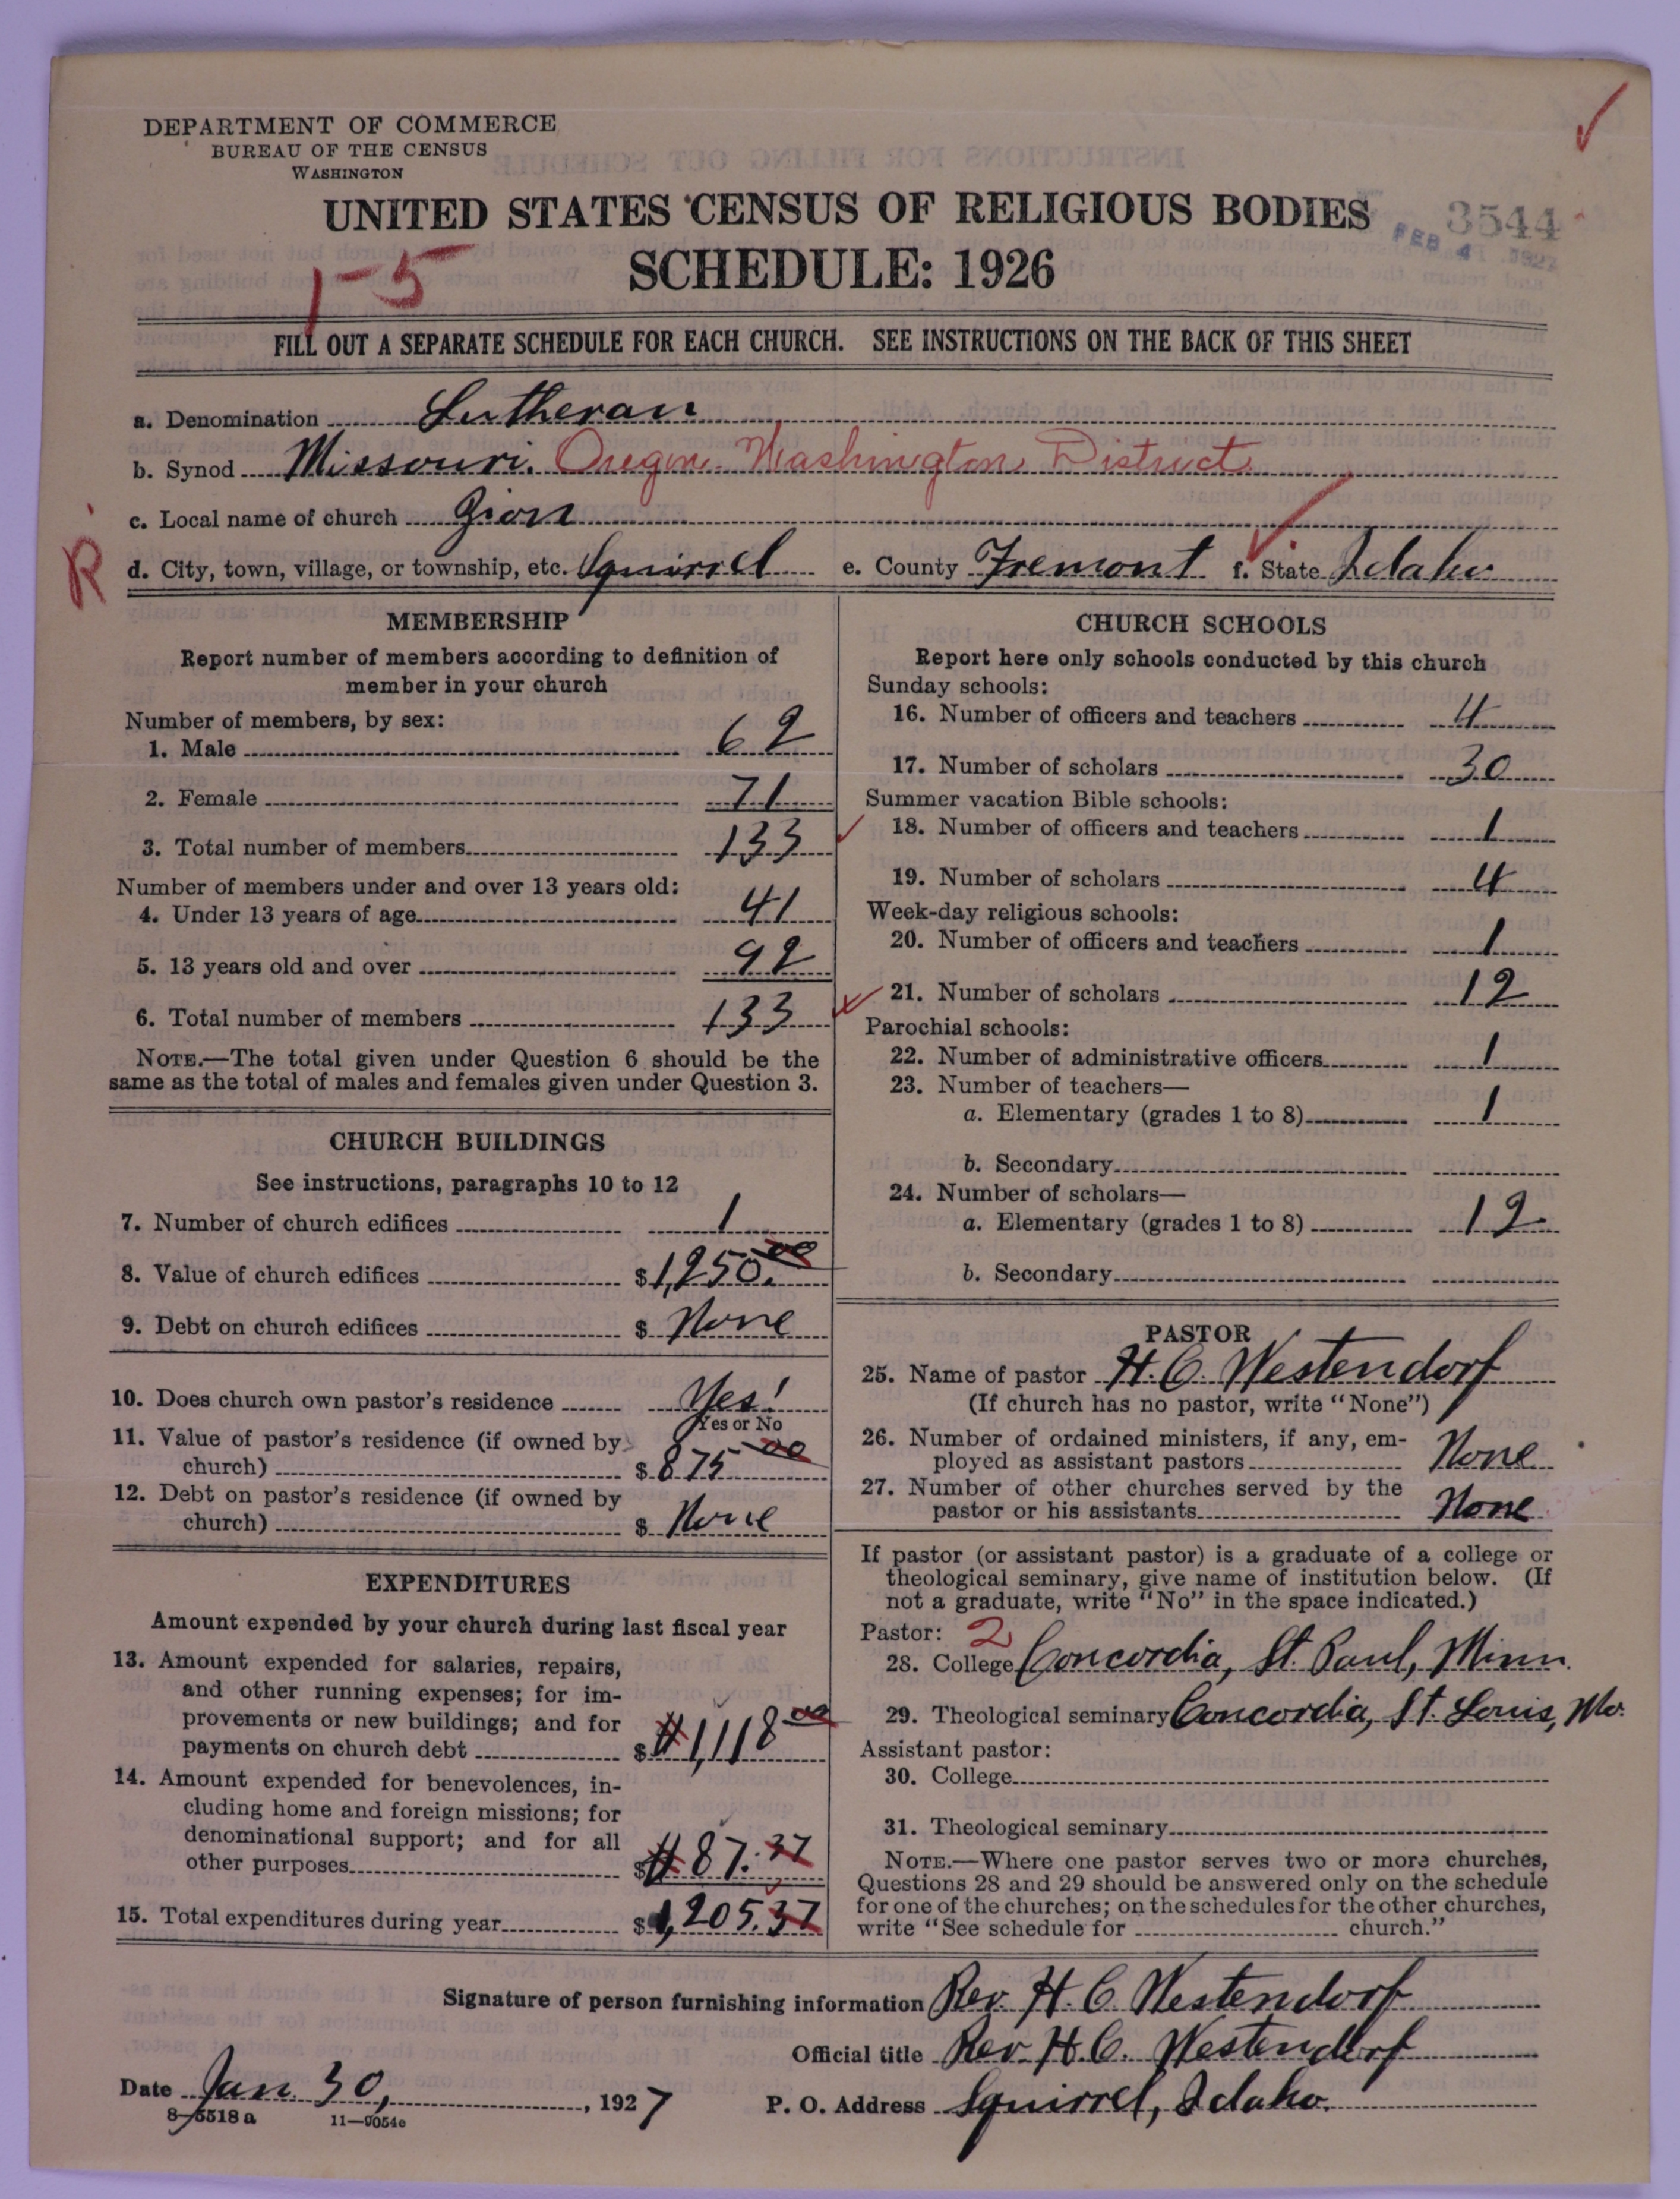 DEPARTMENT OF COMMERCE
BUREAU OF THE CENSUS
WASHINGTON
UNITED STATES CENSUS OF RELIGIOUS BODIES
3544
FEB 4 1927
SCHEDULE: 1926
1-5
FILL OUT A SEPARATE SCHEDULE FOR EACH CHURCH. SEE INSTRUCTIONS ON THE BACK OF THIS SHEET
a. Denomination Lutheran
b. Synod Missouri. Oregon Washington District
c. Local name of church Zion
R
d. City, town, village, or township, etc. Squirrel e. County Fremont f. State Idaho
MEMBERSHIP
Report number of members according to definition of
member in your church
Number of members, by sex:
1. Male 62
2. Female 71
3. Total number of members 133
Number of members under and over 13 years old:
4. Under 13 years of age 41
5. 13 years old and over 92
6. Total number of members 133
NOTE.—The total given under Question 6 should be the
same as the total of males and females given under Question 3.
CHURCH BUILDINGS
See instructions, paragraphs 10 to 12
7. Number of church edifices 1
8. Value of church edifices $1,250.00
9. Debt on church edifices $ None
10. Does church own pastor's residence Yes!
Yes or No
11. Value of pastor's residence (if owned by
church) $ 875 00
12. Debt on pastor's residence (if owned by
church) $ None
EXPENDITURES
Amount expended by your church during last fiscal year
13. Amount expended for salaries, repairs,
and other running expenses; for im-
provements or new buildings; and for
payments on church debt $ #1,118 00
14. Amount expended for benevolences, in-
cluding home and foreign missions; for
denominational support; and for all
other purposes $ # 87.37
15. Total expenditures during year $1,205.37
CHURCH SCHOOLS
Report here only schools conducted by this church
Sunday schools:
16. Number of officers and teachers 4
17. Number of scholars 30
Summer vacation Bible schools:
18. Number of officers and teachers 1
19. Number of scholars 4
Week-day religious schools:
20. Number of officers and teachers 1
21. Number of scholars 12
Parochial schools:
22. Number of administrative officers 1
23. Number of teachers—
a. Elementary (grades 1 to 8) 1
b. Secondary
24. Number of scholars—
a. Elementary (grades 1 to 8) 12
b. Secondary
PASTOR
25. Name of pastor H. C. Westendorf
(If church has no pastor, write "None")
26. Number of ordained ministers, if any, em-
ployed as assistant pastors None
27. Number of other churches served by the
pastor or his assistants None
If pastor (or assistant pastor) is a graduate of a college or
theological seminary, give name of institution below. (If
not a graduate, write "No" in the space indicated.)
Pastor: 2
28. College Concordia, St. Paul, Minn.
29. Theological seminary Concordia, St. Louis, Mo.
Assistant pastor:
30. College
31. Theological seminary
NOTE.—Where one pastor serves two or more churches,
Questions 28 and 29 should be answered only on the schedule
for one of the churches; on the schedules for the other churches,
write "See schedule for church."
Signature of person furnishing information Rev. H. C. Westendorf
Official title Rev. H. C. Westendorf
Date Jan. 30, , 1927 P. O. Address Squirrel, Idaho.
8-5518 a 11-9054c